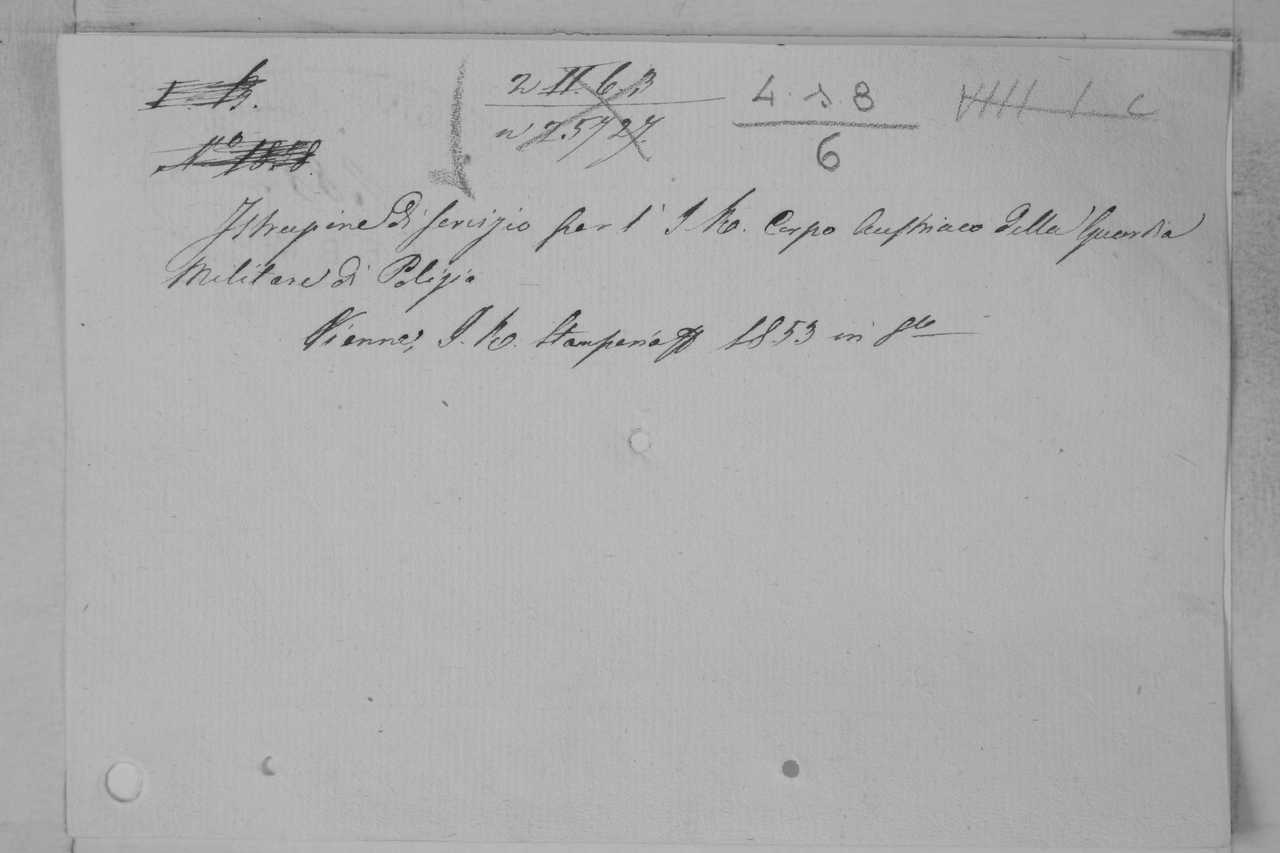 I. B.
No 1858.
2 II. 6. B
n 7.5727.
4 s 8
6
VIIII I C
Istruzione di servizio per l' I. R. Corpo Austriaco della Guardia
Militare di Polizia
Vienna, I. R. Stamperia 1853 in 8vo